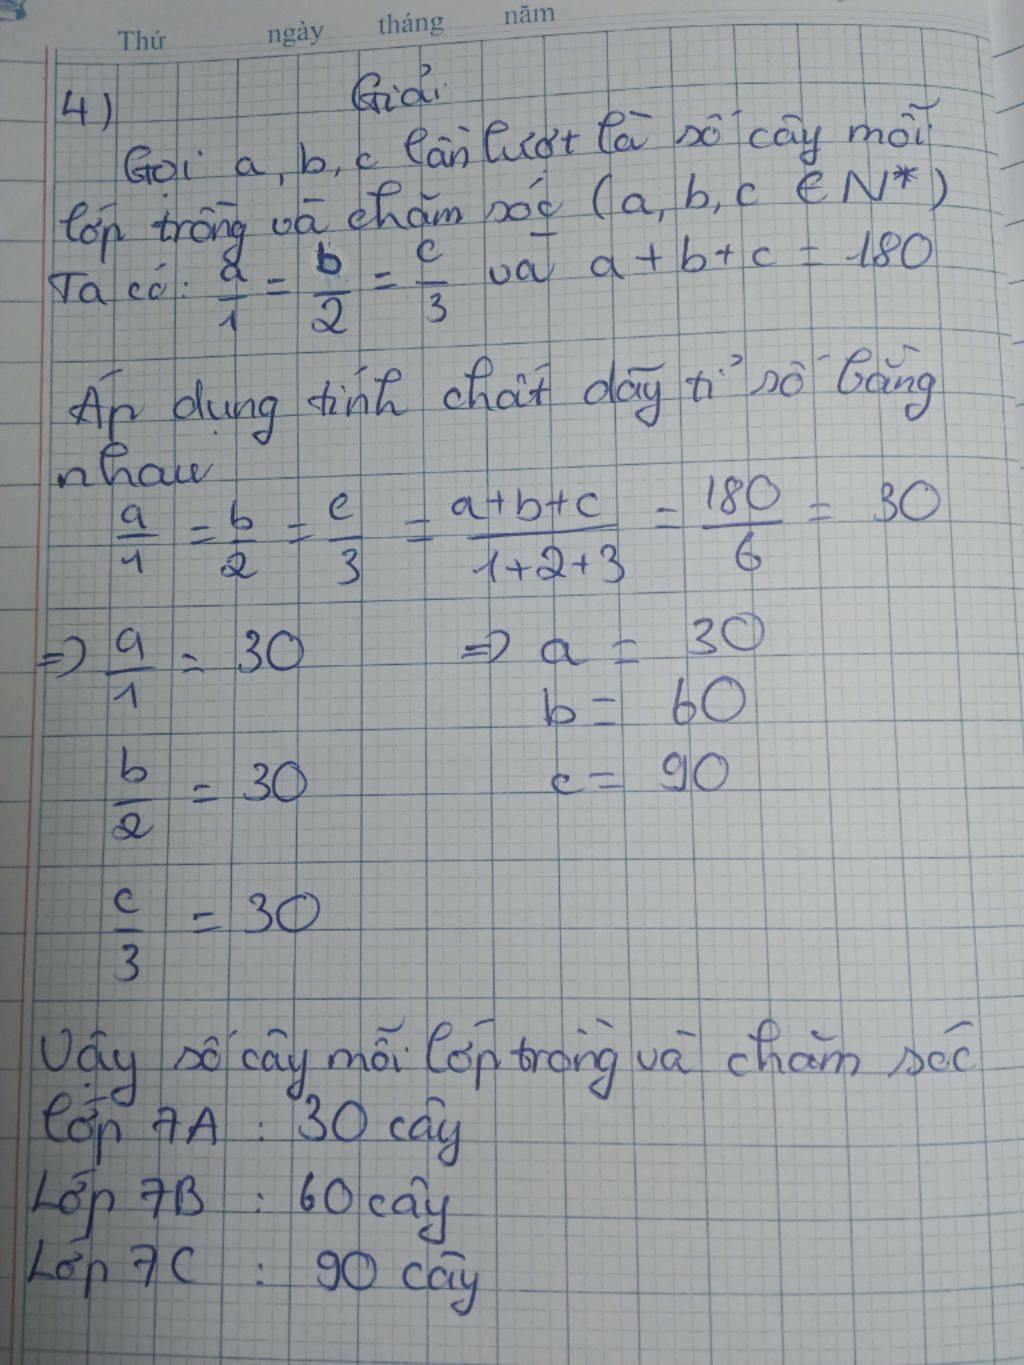 Thứ ngày tháng năm
4) Giải
Gọi a, b, c lần lượt là số cây mỗi
lớp trồng và chăm sóc (a, b, c ∈ N*)
Ta có: a/1 = b/2 = c/3 và a + b + c = 180
Áp dụng tính chất dãy tỉ số bằng
nhau
a/1 = b/2 = c/3 = (a+b+c)/(1+2+3) = 180/6 = 30
=> a/1 = 30 => a = 30
b = 60
b/2 = 30 c = 90
c/3 = 30
Vậy số cây mỗi lớp trồng và chăm sóc
lớp 7A : 30 cây
Lớp 7B : 60 cây
Lớp 7C : 90 cây